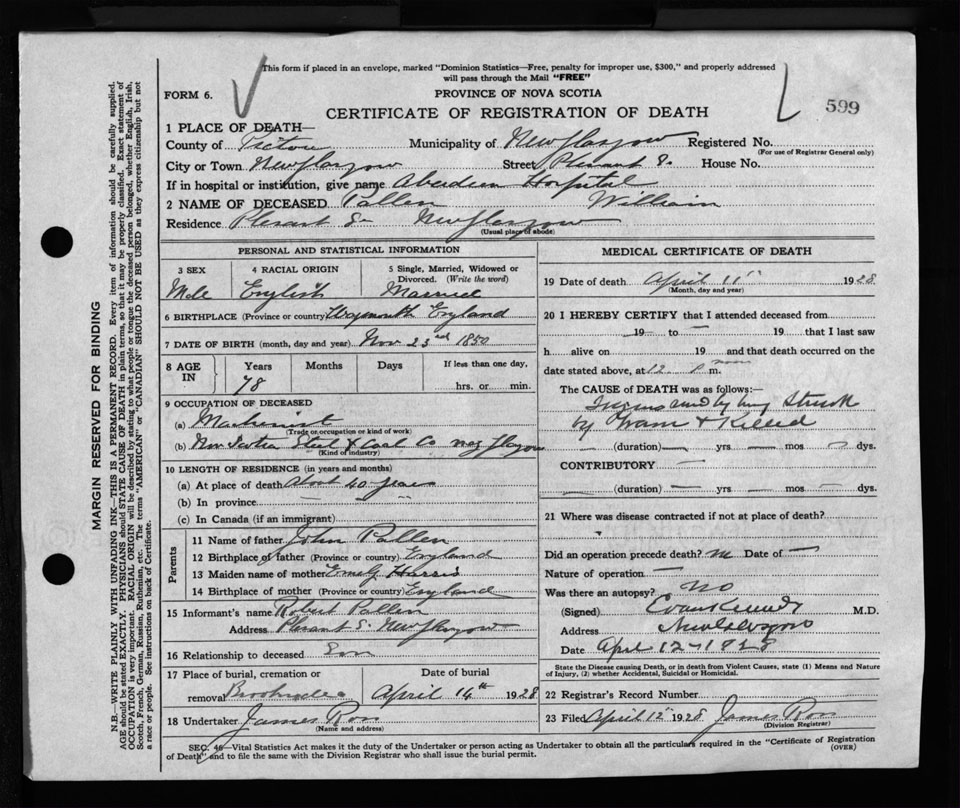 This form if placed in an envelope, marked "Dominion Statistics—Free, penalty for improper use, $300," and properly addressed
will pass through the Mail "FREE"
FORM 6.
PROVINCE OF NOVA SCOTIA
CERTIFICATE OF REGISTRATION OF DEATH
599
1 PLACE OF DEATH—
County of Pictou Municipality of New Glasgow Registered No.
(For use of Registrar General only)
City or Town New Glasgow Street Plesant S. House No.
If in hospital or institution, give name Aberdeen Hospital
2 NAME OF DECEASED Pallen William
Residence Plesant S New Glasgow
(Usual place of abode)
PERSONAL AND STATISTICAL INFORMATION
3 SEX 4 RACIAL ORIGIN 5 Single, Married, Widowed or Divorced. (Write the word)
Male English Married
6 BIRTHPLACE (Province or country) Waymouth England
7 DATE OF BIRTH (month, day and year) Nov 23rd 1850
8 AGE IN Years Months Days If less than one day,
78 hrs. or min.
9 OCCUPATION OF DECEASED
(a) Machinist
(Trade or occupation or kind of work)
(b) Nova Scotia Steel & Coal Co New Glasgow
(Kind of industry)
10 LENGTH OF RESIDENCE (in years and months)
(a) At place of death About 40 years
(b) In province — " "
(c) In Canada (if an immigrant)
Parents
11 Name of father John Pallen
12 Birthplace of father (Province or country) England
13 Maiden name of mother Emely Harris
14 Birthplace of mother (Province or country) England
15 Informant's name Robert Pallen
Address Plesant S. New Glasgow
16 Relationship to deceased Son
17 Place of burial, cremation or removal Date of burial
April 14th 1928
18 Undertaker James Ross
(Name and address)
MEDICAL CERTIFICATE OF DEATH
19 Date of death April 11th 1928
(Month, day and year)
20 I HEREBY CERTIFY that I attended deceased from
19— to — 19 that I last saw
h alive on 19 and that death occurred on the
date stated above, at 12 noon p m.
The CAUSE OF DEATH was as follows:
by being Struck
by Tram & Killed
— (duration) — yrs — mos — dys.
CONTRIBUTORY —
— (duration) — yrs — mos — dys.
21 Where was disease contracted if not at place of death?
—
Did an operation precede death? no Date of —
Nature of operation —
Was there an autopsy? No
(Signed) M.D.
Address New Glasgow
Date April 12—1928
State the Disease causing Death, or in death from Violent Causes, state (1) Means and Nature
of Injury, (2) whether Accidental, Suicidal or Homicidal.
22 Registrar's Record Number
23 Filed April 12 1928 James Ross
(Division Registrar)
SEC. 46—Vital Statistics Act makes it the duty of the Undertaker or person acting as Undertaker to obtain all the particulars required in the "Certificate of Registration
of Death" and to file the same with the Division Registrar who shall issue the burial permit.
(OVER)
MARGIN RESERVED FOR BINDING
N.B.—WRITE PLAINLY WITH UNFADING INK—THIS IS A PERMANENT RECORD. Every item of information should be carefully supplied.
AGE should be stated EXACTLY. PHYSICIANS should STATE CAUSE OF DEATH in plain terms, so that it may be properly classified. Exact statement of
OCCUPATION is very important. RACIAL ORIGIN will be described by stating to what people or tongue the deceased person belonged, whether English, Irish,
Scotch, French, German, Russian, Ruthenian, etc. The terms "AMERICAN" or "CANADIAN" SHOULD NOT BE USED as they express citizenship but not
a race or people. See instructions on back of Certificate.